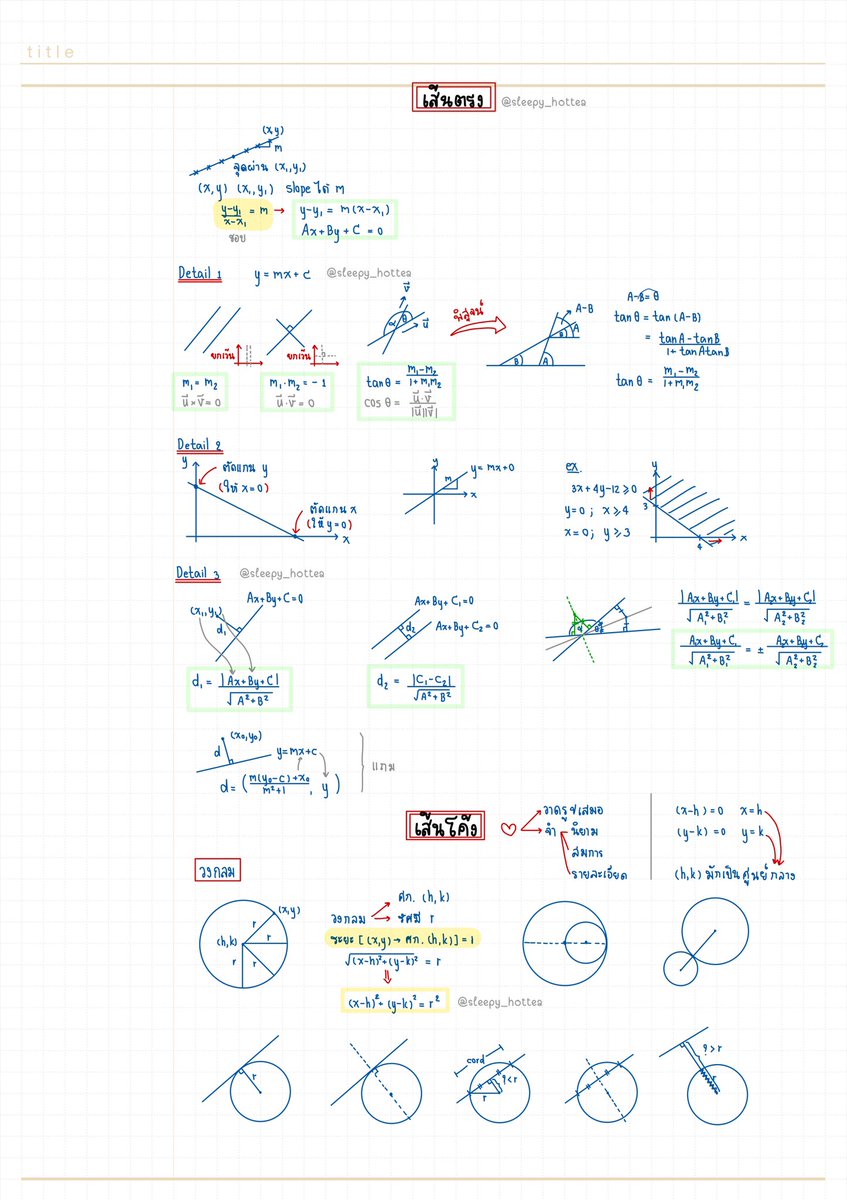 title
เส้นตรง @sleepy_hottea
(x,y)
m
จุดผ่าน (x₁,y₁)
(x,y) (x₁,y₁) slope ได้ m
(y-y₁)/(x-x₁) = m → y-y₁ = m(x-x₁)
ชอบ
Ax+By+C = 0
Detail 1 y=mx+c @sleepy_hottea
ยกเว้น
m₁ = m₂
u⃗ × v⃗ = 0
ยกเว้น
m₁·m₂ = -1
u⃗ · v⃗ = 0
v⃗
α θ u⃗
tanθ = (m₁-m₂)/(1+m₁m₂)
cosθ = (u⃗·v⃗)/(|u⃗||v⃗|)
พิสูจน์
A-B
B A
B A
A-B = θ
tanθ = tan(A-B)
= (tanA-tanB)/(1+tanAtanB)
tanθ = (m₁-m₂)/(1+m₁m₂)
Detail 2
y
ตัดแกน y
(ให้ x=0)
ตัดแกน x
(ให้ y=0)
x
y
y=mx+0
m
x
ex.
3x+4y-12 ≥ 0
y=0 ; x ≥ 4
x=0 ; y ≥ 3
y
3
4
x
Detail 3 @sleepy_hottea
(x₁,y₁) Ax+By+C=0
d₁
d₁ = |Ax+By+C|/√(A²+B²)
Ax+By+C₁=0
d₂ Ax+By+C₂=0
d₂ = |C₁-C₂|/√(A²+B²)
|Ax+By+C₁|/√(A₁²+B₁²) = |A₂x+B₂y+C₂|/√(A₂²+B₂²)
(Ax+By+C₁)/√(A₁²+B₁²) = ± (A₂x+B₂y+C₂)/√(A₂²+B₂²)
(x₀,y₀)
d
y=mx+c
d = ((m(y₀-c)+x₀)/(m²+1), y)
แถม
เส้นโค้ง
วาดรูปเสมอ
จำ นิยาม
สมการ
รายละเอียด
(x-h) = 0 x=h
(y-k) = 0 y=k
(h,k) มักเป็นศูนย์กลาง
วงกลม
(x,y)
r
(h,k) r
r r
วงกลม
ศก. (h,k)
รัศมี r
ระยะ [(x,y) → ศก. (h,k)] = 1
√((x-h)²+(y-k)²) = r
(x-h)²+(y-k)² = r² @sleepy_hottea
r
cord
? < r
r
? > r
r